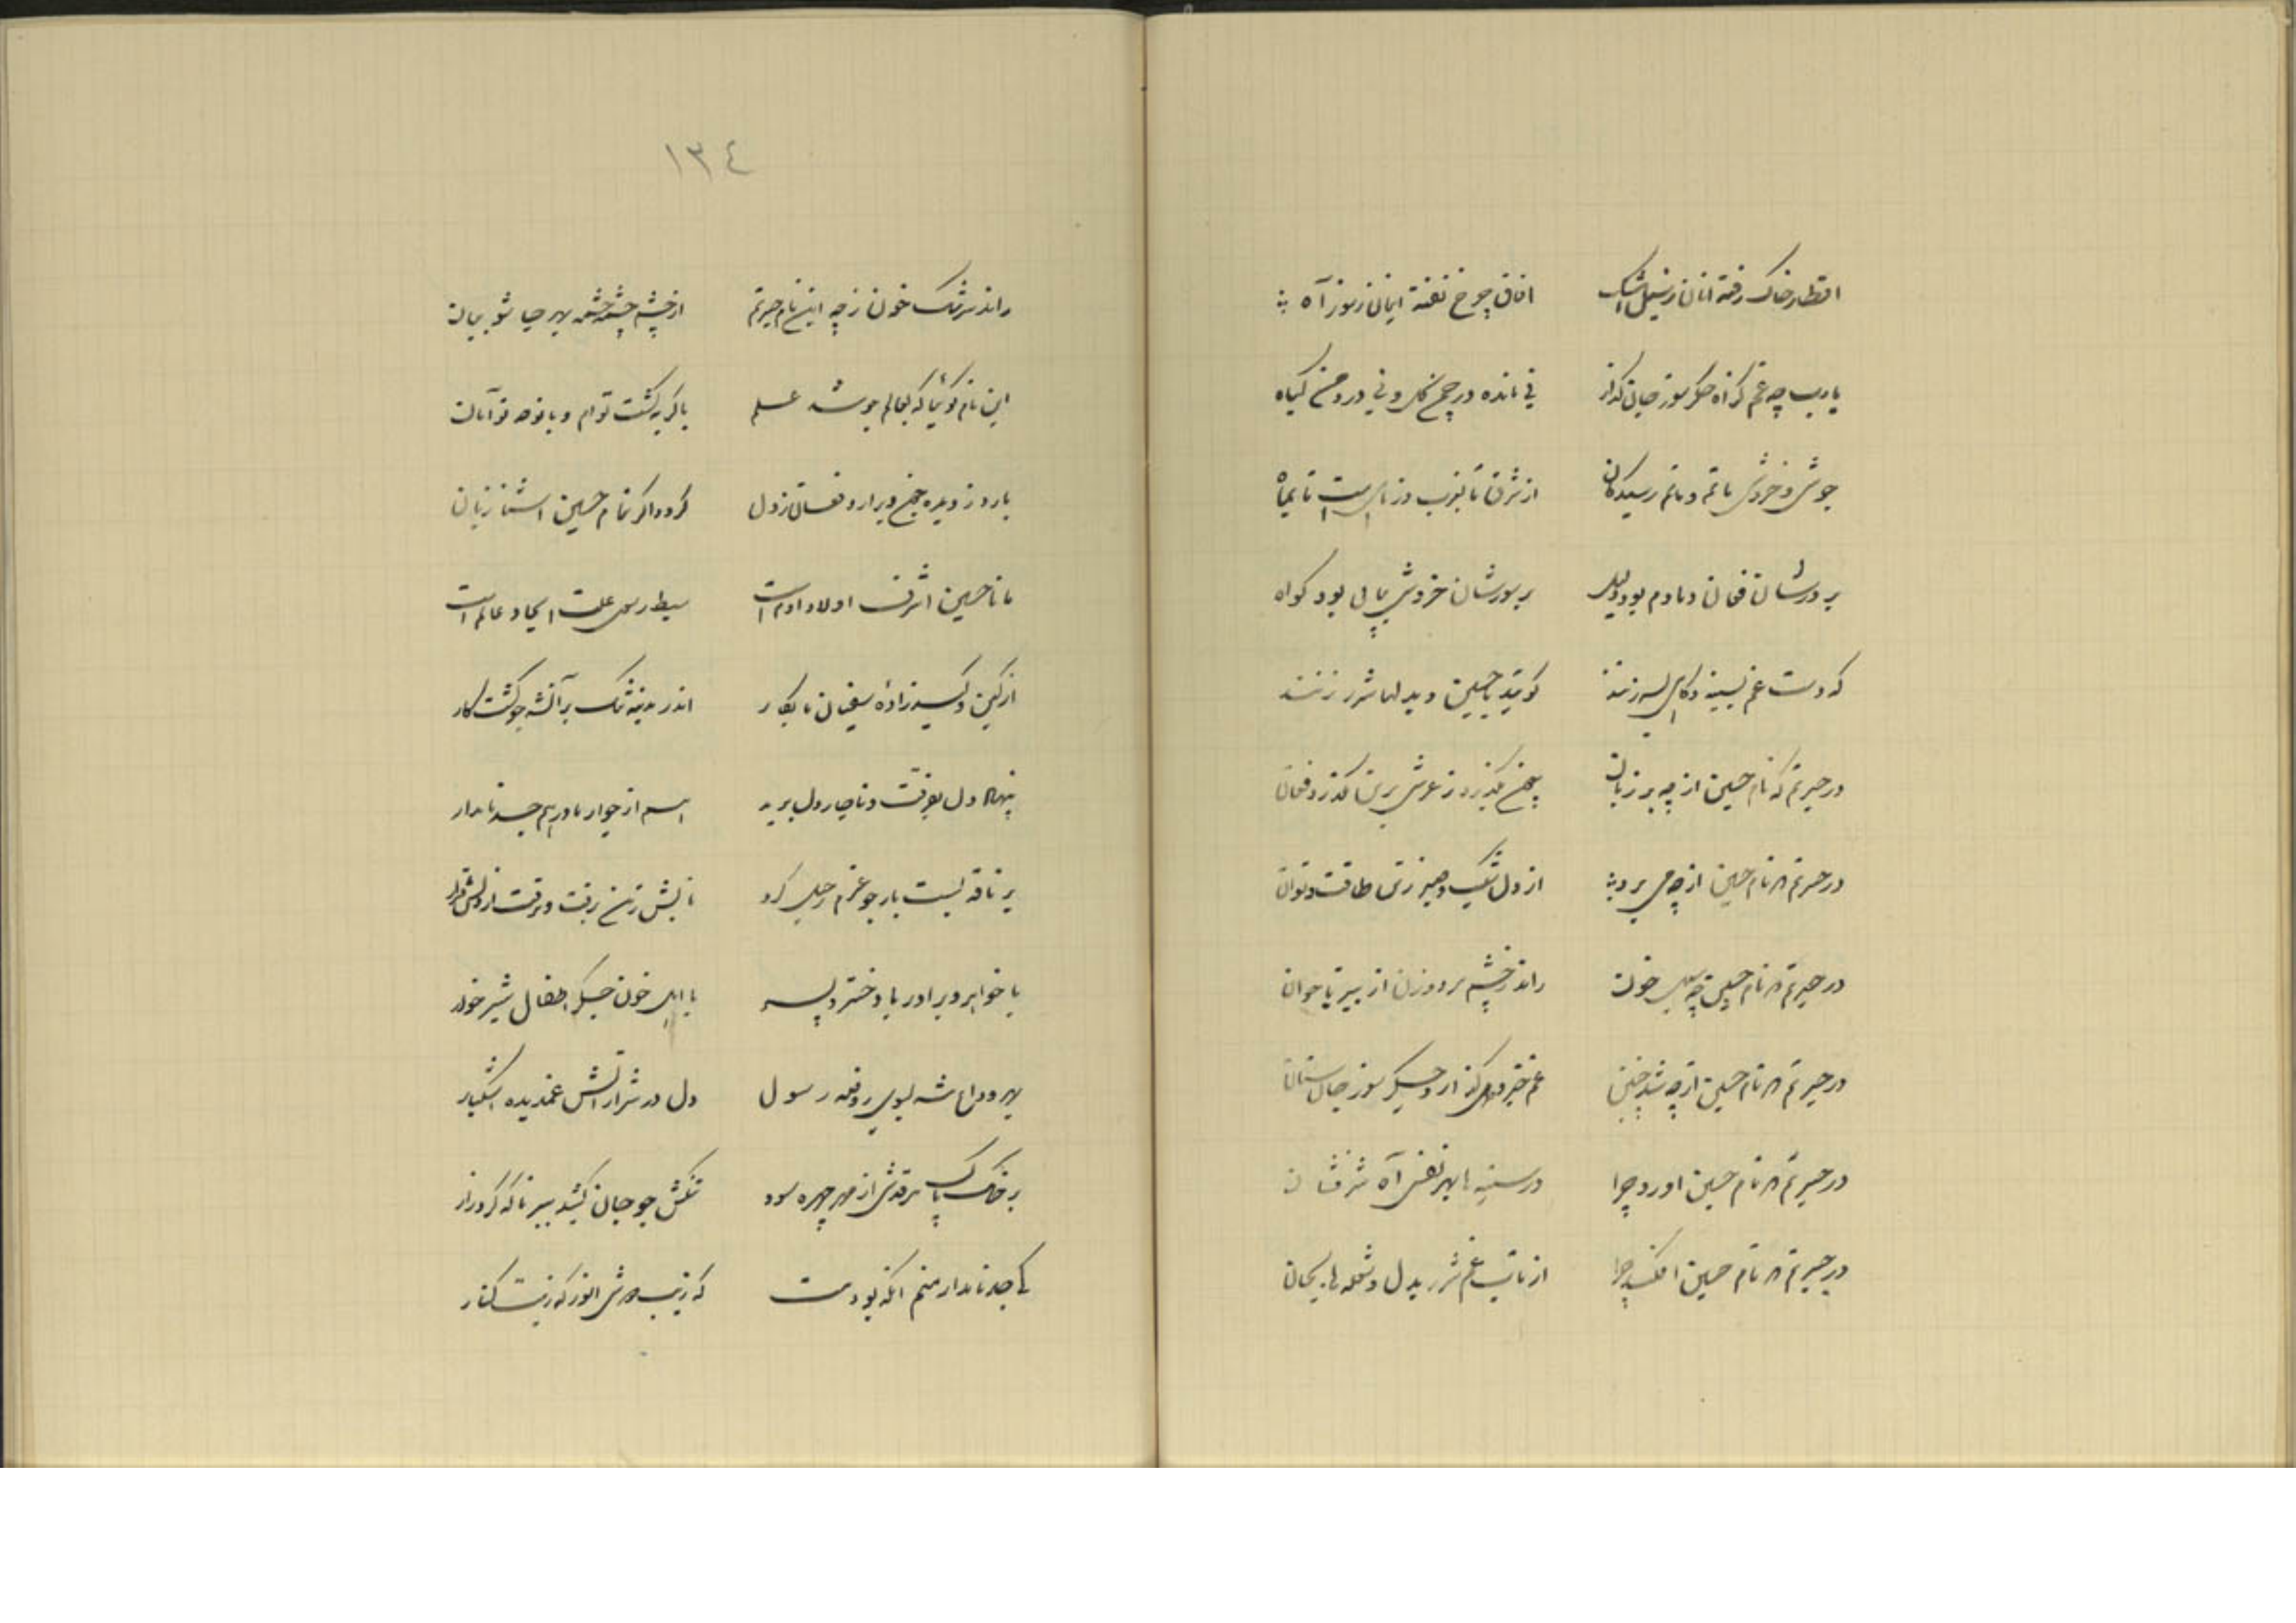 اقطار خاک رفته انان ز سیل اشک افاق چرخ تفته ایمان ز سوز آه
یارب چه غم کزاه جگر سوز جان گداز نی مانده در چمن گل و نی در دمن گیاه
جوش و خروش ماتم و ماتم رسیدگان از شرق تا بغرب و ز ماهیست تا بماه
بر دردشان فغان دمادم بود دلیل بر سورشان خروش پیاپی بود گواه
که دست غم بسینه و گاهی بسر زنند گویند یا حسین و بدلها شرر زنند
در حیرتم که نام حسین از چه بر زبان چون بگذرد ز عرش برین بگذرد فغان
در حیرتم که نام حسین از چه می برد از دل شکیب و صبر ز تن طاقت و توان
در حیرتم که نام حسین چه سیل خون راند ز چشم مرد و زن از پیر تا جوان
در حیرتم که نام حسین از چه شد چنین غم خیز و دل گداز و جگر سوز جانستان
در حیرتم که نام حسین آورد چرا در سینه ها بهر نفس آه شرفشان
در حیرتم که نام حسین افکند چرا از تاب غم شرر بدل و شعله ها بجان
١٣٤
راند سرشک خون ز چه این نام حیرتم از چشم چشمه چشمه بهر جا شو بیان
این نام گوئیا که بعالم چو شد علم با گریه گشت توام و با نوحه توآمان
بارد ز دیده و برارد فغان ز دل گردد اگر بنام حسین آشنا زبان
مانا حسین اشرف اولاد ادم است سبط رسول علت ایجاد عالم است
از کین و کید زاده سفیان نابکار اندر مدینه تنگ بر آنشه چو گشت کار
پنهان دل برفت و ناچار دل برید هم از جوار مادر هم جد نامدار
بر ناقه بست بار چو عزم رحیل کرد تابش ز تن برفت و برفت از دلش قرار
با خواهر و برادر با دختر و پسر با اهل خون جگر اطفال شیر خوار
بهر وداع شد بسوی روضه رسول دل در شرار آتش غم دیده اشکبار
بر خاک پاک مرقدش از مهر چهره سود تنگش چو جان کشید ببر ناله کرد زار
کای جد نامدار منم انکه بودمت که زیب دوش انور که زینت کنار